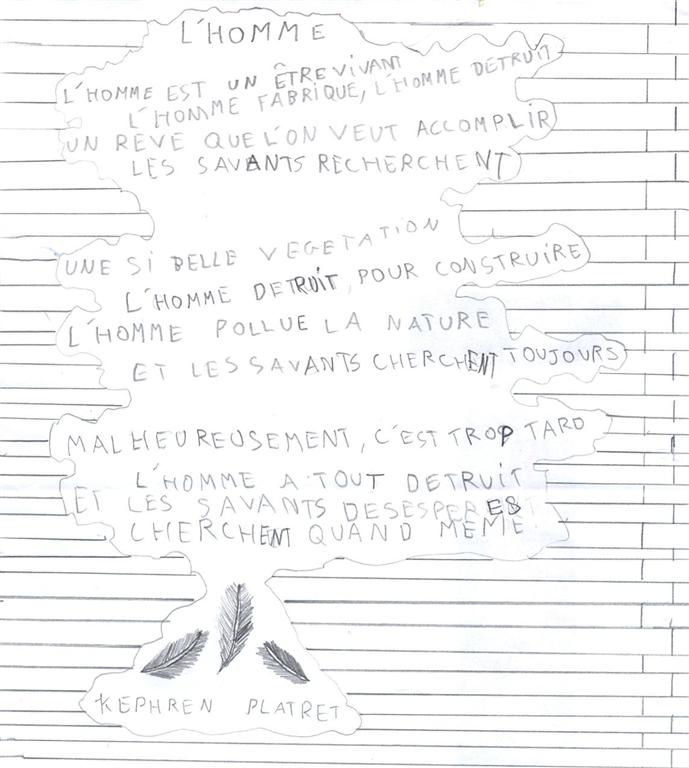 L'HOMME
L'HOMME EST UN ÊTRE VIVANT
L'HOMME FABRIQUE, L'HOMME DETRUIT
UN RÊVE QUE L'ON VEUT ACCOMPLIR
LES SAVANTS RECHERCHENT
UNE SI BELLE VEGETATION
L'HOMME DETRUIT, POUR CONSTRUIRE
L'HOMME POLLUE LA NATURE
ET LES SAVANTS CHERCHENT TOUJOURS
MALHEUREUSEMENT, C'EST TROP TARD
L'HOMME A TOUT DETRUIT
ET LES SAVANTS DESESPERES
CHERCHENT QUAND MEME
KEPHREN PLATRET